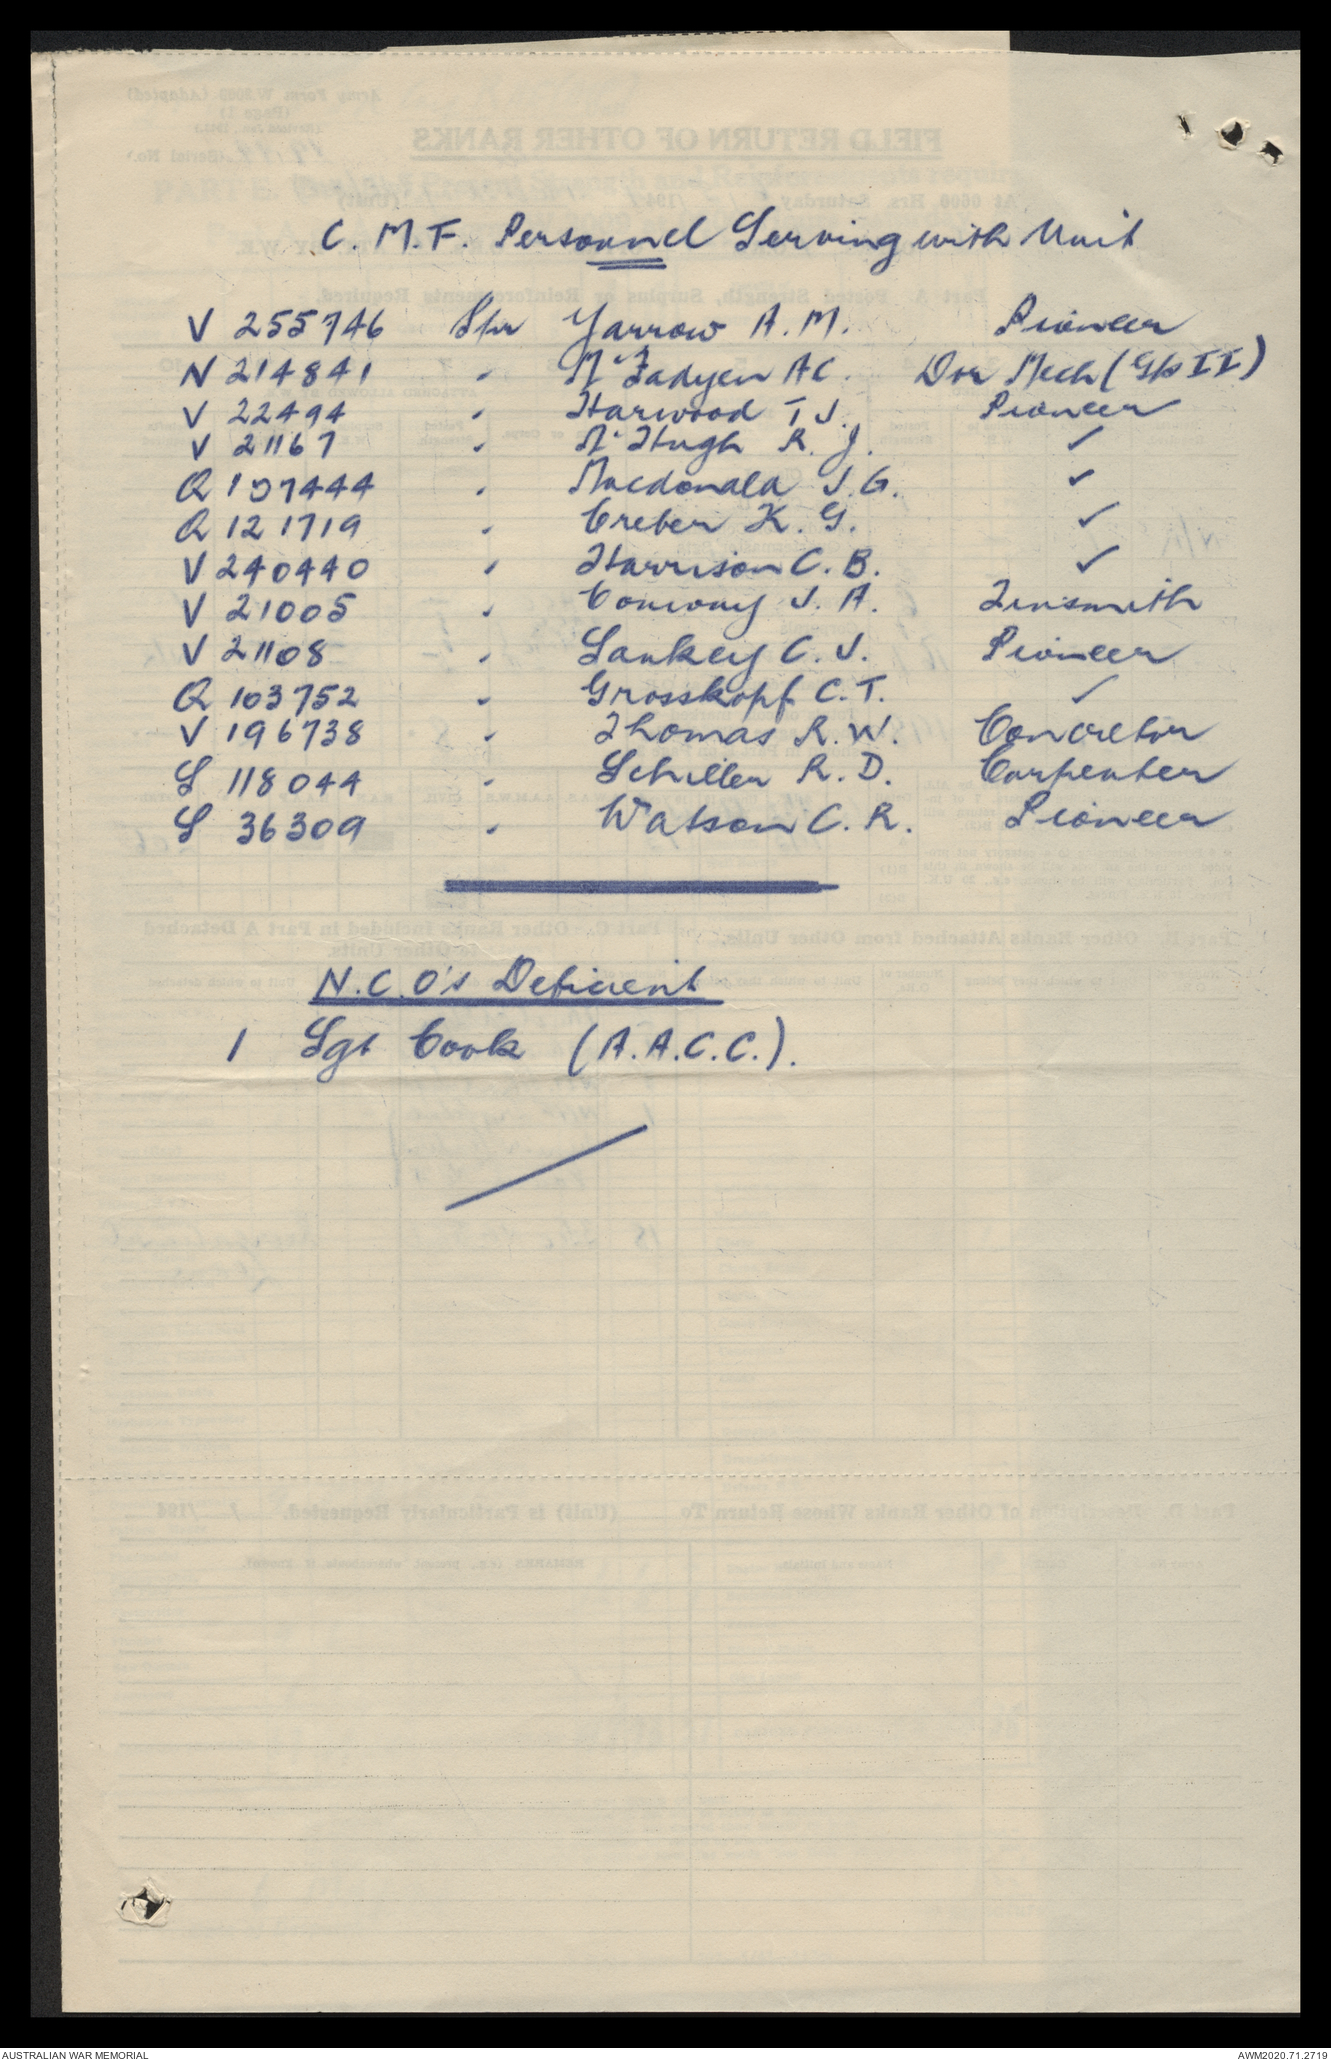 C. M. F. Personnel Serving with Unit
V 255746 Spr Yarrow A. M. Pioneer
N 214841 " McFadyen A C. Dvr Mech (Gp II)
V 22494 " Harwood T J. Pioneer
V 21167 " McHugh R. J. ✓
Q 197444 " Macdonald J. G. ✓
Q 121719 " Creber K. G. ✓
V 240440 " Harrison C. B. ✓
V 21005 " Conway J. A. Tinsmith
V 21108 " Sankey C. J. Pioneer
Q 103752 " Grosskopf C. T. ✓
V 196738 " Thomas R. W. Concretor
S 118044 " Schiller R. D. Carpenter
S 36309 " Watson C. R. Pioneer
N.C.O's Deficient
1 Sgt Cook (A.A.C.C.).
AUSTRALIAN WAR MEMORIAL AWM2020.71.2719